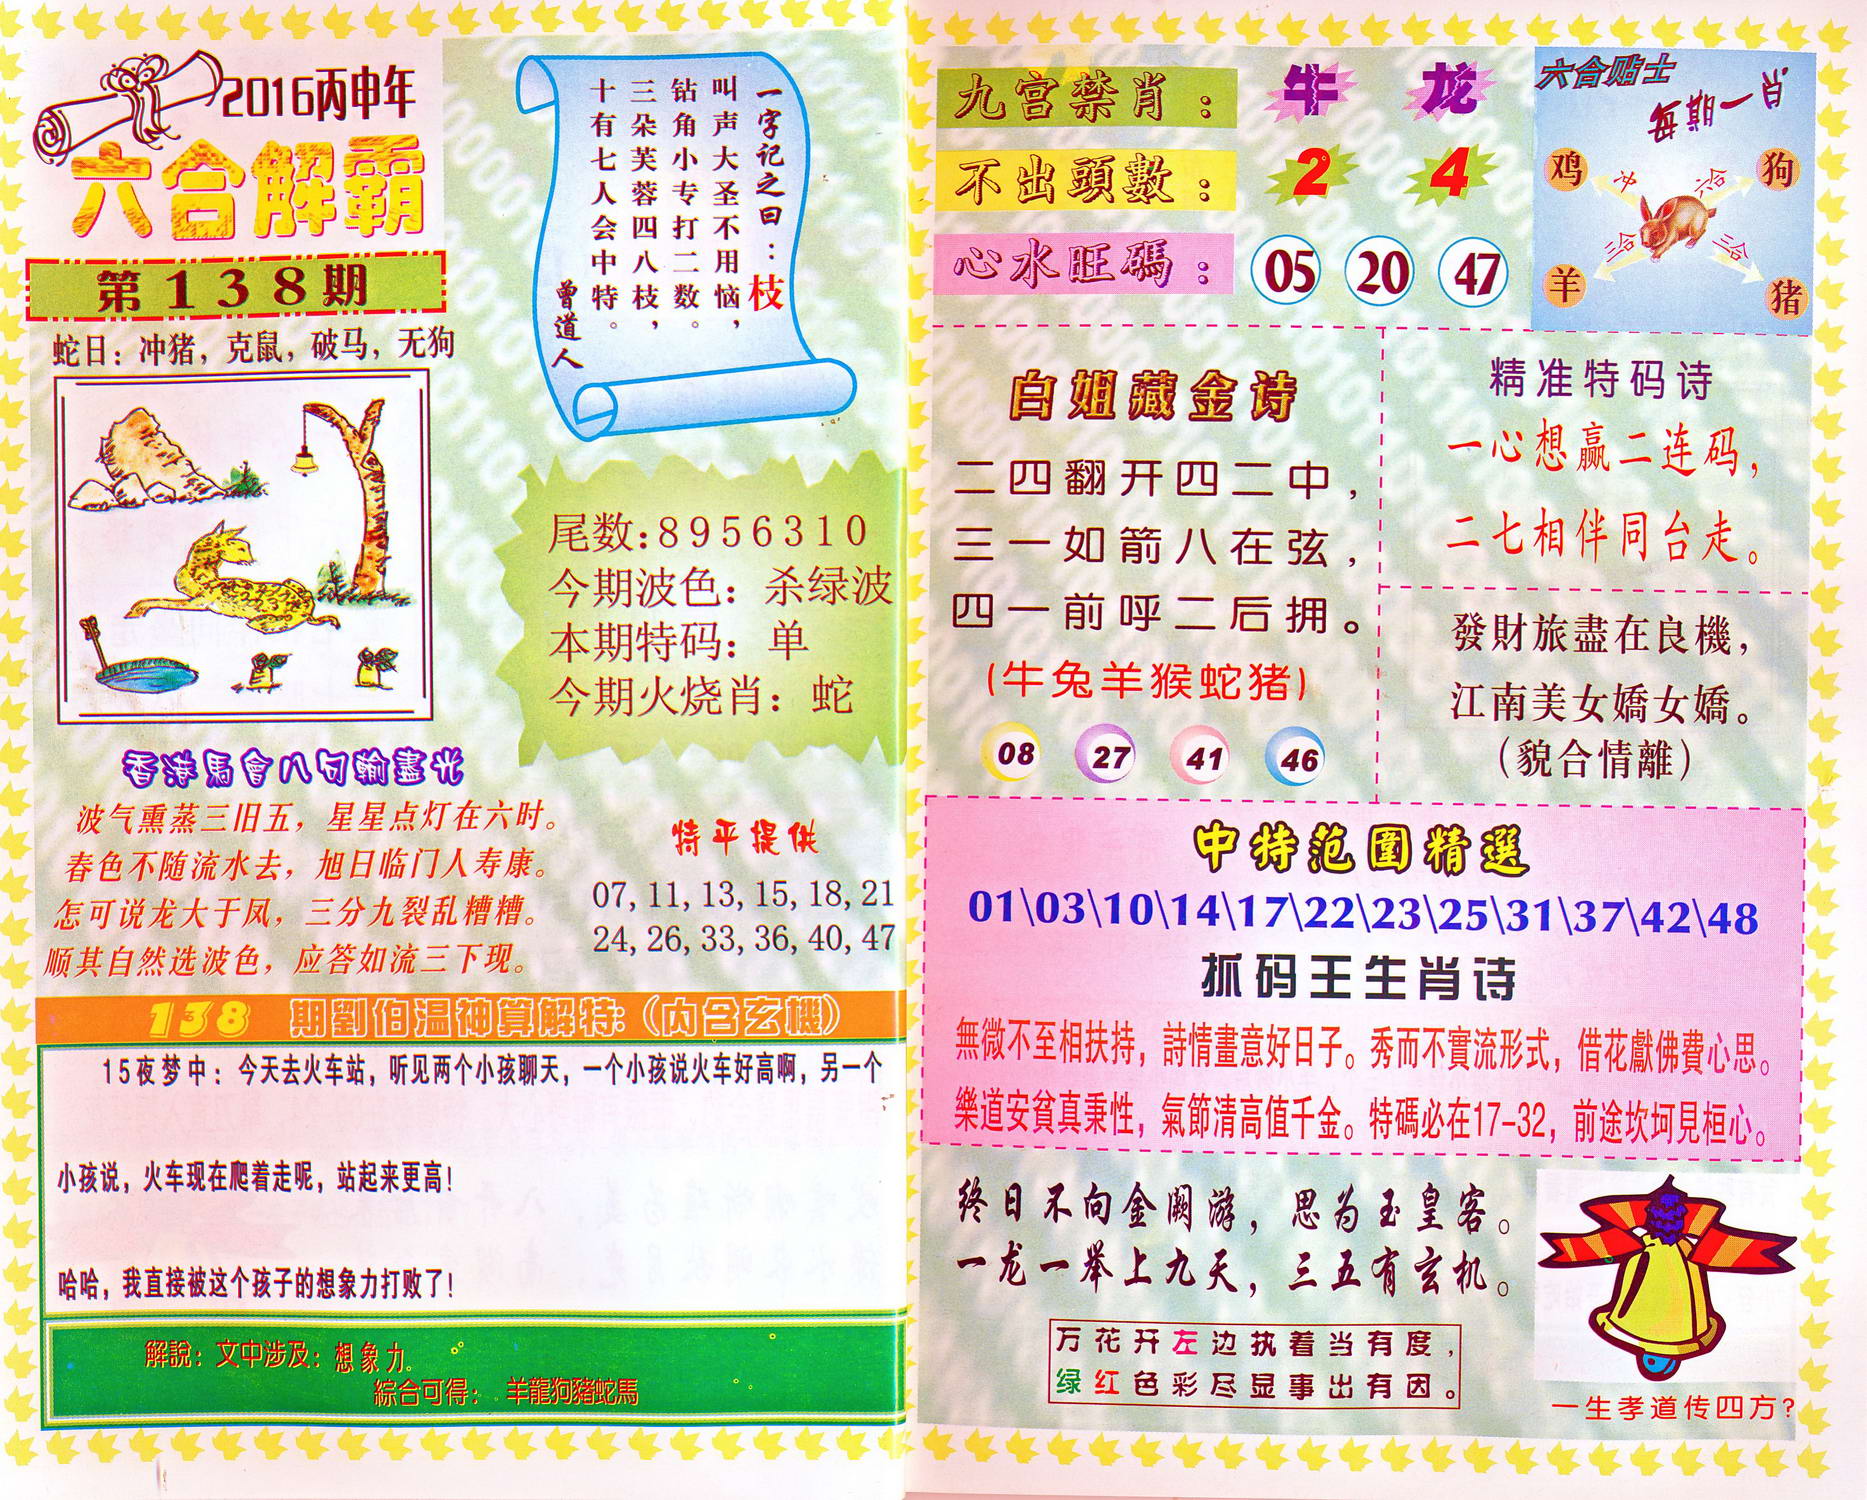 2016丙申年
六合解霸
第138期
蛇日：冲猪，克鼠，破马，无狗
一字记之曰：枝
叫声大圣不用恼，
钻角小专打二数。
三朵芙蓉四八枝，
十有七人会中特。
曾道人
尾数:8956310
今期波色：杀绿波
本期特码：单
今期火烧肖：蛇
香港馬會八句輸盡光
波气熏蒸三旧五，星星点灯在六时。
春色不随流水去，旭日临门人寿康。
怎可说龙大于凤，三分九裂乱糟糟。
顺其自然选波色，应答如流三下现。
特平提供
07,11,13,15,18,21
24,26,33,36,40,47
138 期劉伯温神算解特:（内含玄機）
15夜梦中：今天去火车站，听见两个小孩聊天，一个小孩说火车好高啊，另一个
小孩说，火车现在爬着走呢，站起来更高！
哈哈，我直接被这个孩子的想象力打败了！
解說：文中涉及：想象力。
綜合可得：羊龍狗豬蛇馬
九宫禁肖：牛 龙
不出頭數：2 4
心水旺碼：05 20 47
六合贴士
每期一肖
鸡 冲 六合 狗
羊 三合 三合 猪
白姐藏金诗
二四翻开四二中，
三一如箭八在弦，
四一前呼二后拥。
(牛兔羊猴蛇猪)
08 27 41 46
精准特码诗
一心想赢二连码，
二七相伴同台走。
發財旅盡在良機，
江南美女嬌女嬌。
（貌合情離）
中特范圍精選
01\03\10\14\17\22\23\25\31\37\42\48
抓码王生肖诗
無微不至相扶持，詩情畫意好日子。秀而不實流形式，借花獻佛費心思。
樂道安貧真秉性，氣節清高值千金。特碼必在17-32，前途坎坷見桓心。
终日不向金阙游，思为玉皇客。
一龙一举上九天，三五有玄机。
万花开左边执着当有度，
绿红色彩尽显事出有因。
一生孝道传四方?